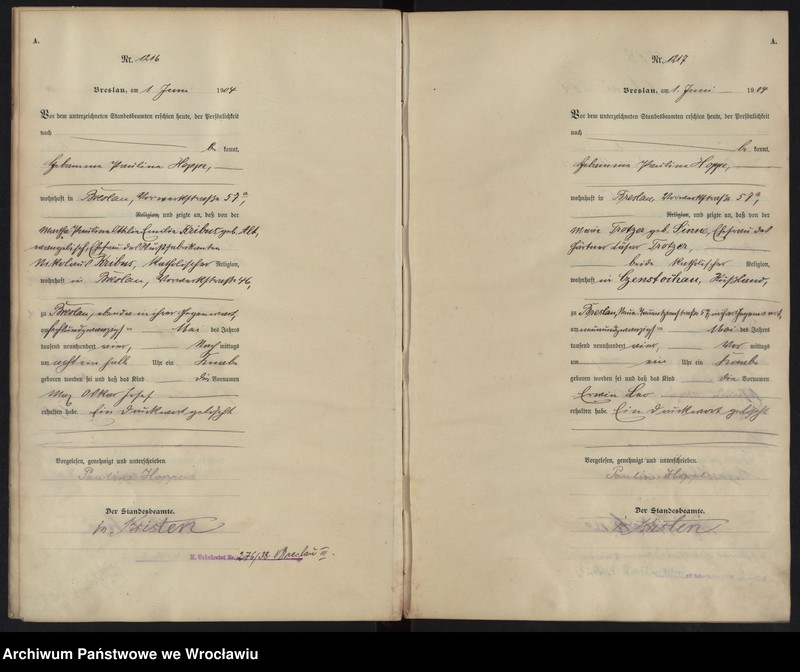 A.
Nr. 1216
Breslau, am 1. Juni 1904
Vor dem unterzeichneten Standesbeamten erschien heute, der Persönlichkeit
nach
be kannt,
Hebamme Pauline Hoppe,
wohnhaft in Breslau, Vorwerkstraße 57a,
Religion, und zeigte an, daß von der
Martha Pauline Ottilie Emilie Kribus geb. Alt,
evangelisch, Ehefrau des
Nikolaus Kribus, katholischer Religion,
wohnhaft in Breslau, Vorwerkstraße 46,
zu Breslau, ebenda in ihrer Gegenwart,
am achtundzwanzigsten Mai des Jahres
tausend neunhundert vier, Nachmittags
um acht ein halb Uhr ein Knabe
geboren worden sei und daß das Kind die Vornamen
Max Oskar Josef
erhalten habe. Ein Druckwort gelöscht
Vorgelesen, genehmigt und unterschrieben
Pauline Hoppe
Der Standesbeamte.
Kristen
276/38 Breslau III.
A.
Nr. 1217
Breslau, am 1. Juni 1904
Vor dem unterzeichneten Standesbeamten erschien heute, der Persönlichkeit
nach
be kannt,
Hebamme Pauline Hoppe,
wohnhaft in Breslau, Vorwerkstraße 57a,
Religion, und zeigte an, daß von der
Marie Trotzer geb. Sinne, Ehefrau des
Gärtner Trotzer,
beide katholischer Religion,
wohnhaft in Czenstochau, Rußland,
zu Breslau, in ihrer Gegenwart,
am neunundzwanzigsten Mai des Jahres
tausend neunhundert vier, Vor mittags
um ein Uhr ein Knabe
geboren worden sei und daß das Kind die Vornamen
Erwin Leo
erhalten habe. Ein Druckwort gelöscht
Vorgelesen, genehmigt und unterschrieben
Pauline Hoppe
Der Standesbeamte.
Kristen
Archiwum Państwowe we Wrocławiu